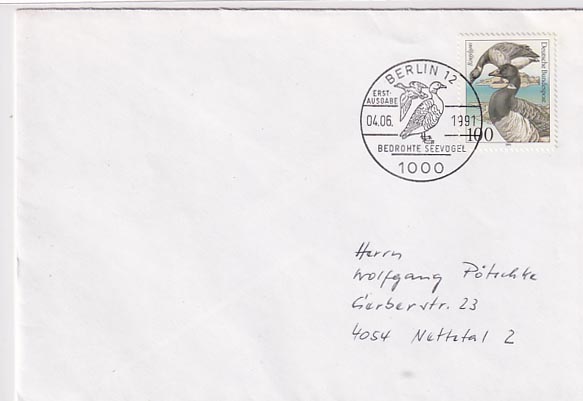 BERLIN 12
ERST-
AUSGABE
04.06. 1991
BEDROHTE SEEVÖGEL
1000
Deutsche Bundespost
100
Herrn
Wolfgang Pötschke
Gerberstr. 23
4054 Nettetal 2